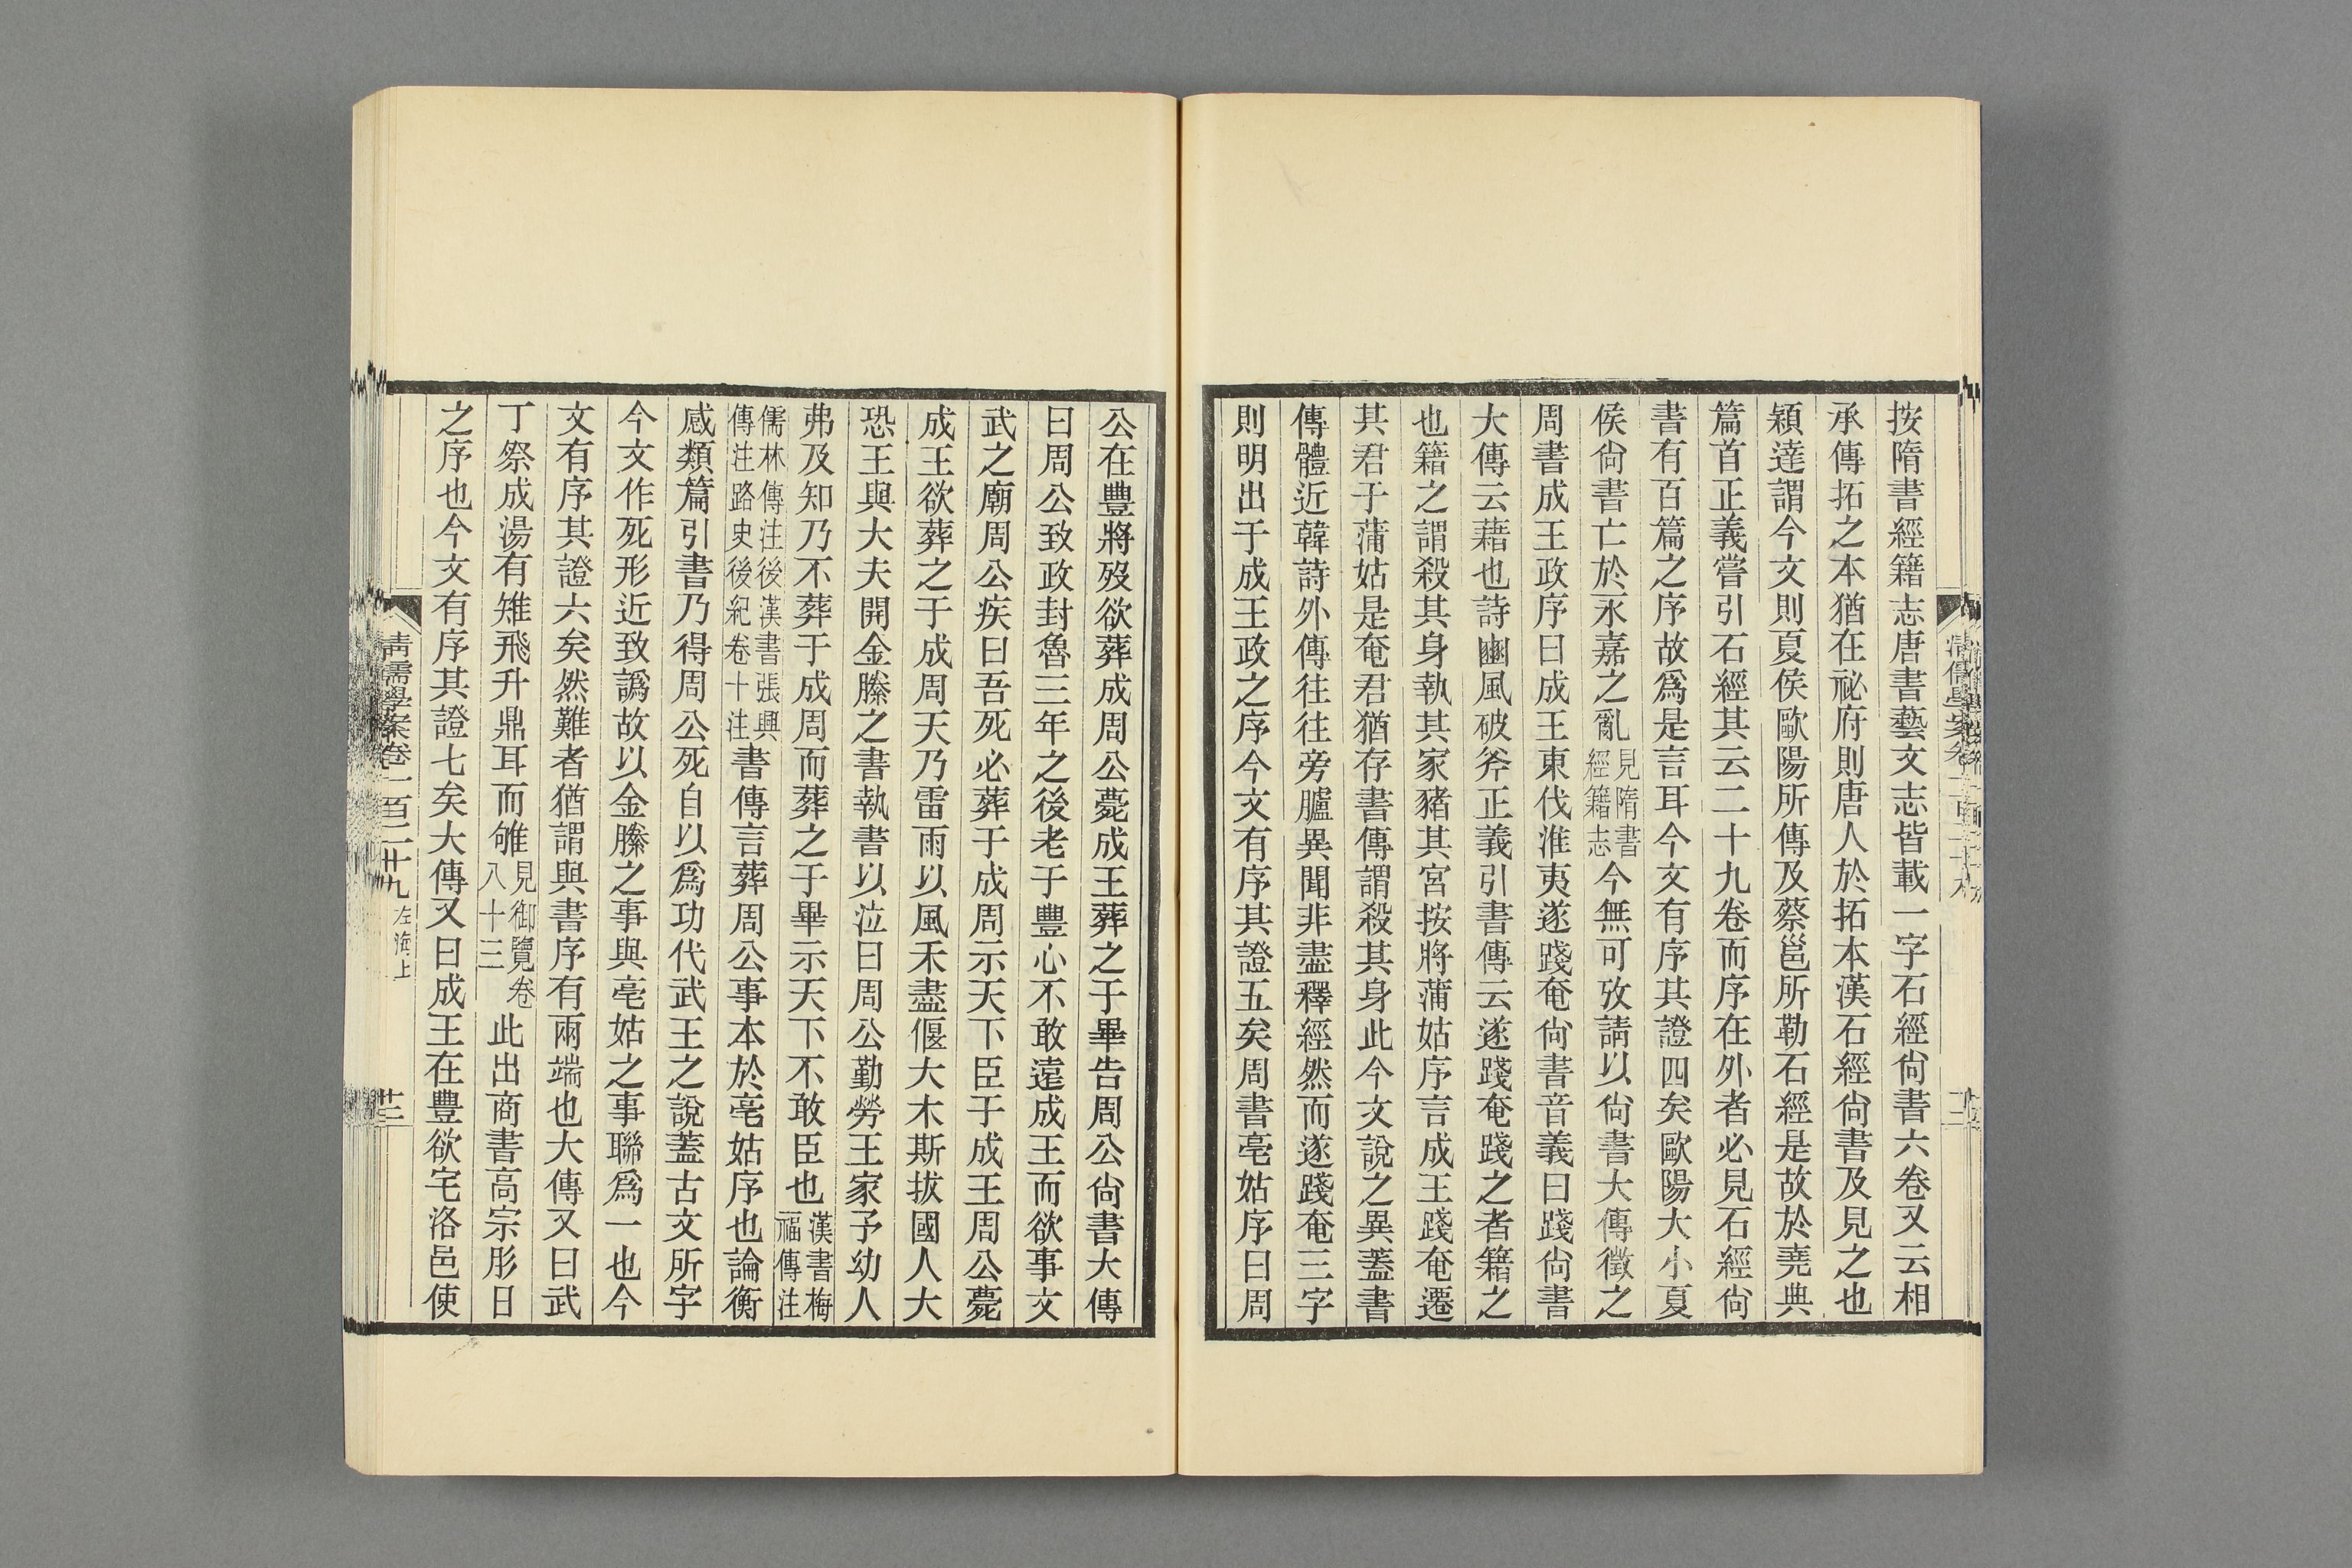 按隋書經籍志唐書藝文志皆載一字石經尙書六卷又云相
承傳拓之本猶在祕府則唐人於拓本漢石經尙書及見之也
穎達謂今文則夏侯歐陽所傳及蔡邕所勒石經是故於堯典
篇首正義嘗引石經其云二十九卷而序在外者必見石經尙
書有百篇之序故爲是言耳今文有序其證四矣歐陽大小夏
侯尙書亡於永嘉之亂見隋書經籍志今無可攷請以尙書大傳徵之
周書成王政序曰成王東伐淮夷遂踐奄尙書音義曰踐尙書
大傳云藉也詩豳風破斧正義引書傳云遂踐奄踐之者籍之
也籍之謂殺其身執其家豬其宮按將蒲姑序言成王踐奄遷
其君于蒲姑是奄君猶存書傳謂殺其身此今文說之異蓋書
傳體近韓詩外傳往往旁臚異聞非盡釋經然而遂踐奄三字
則明出于成王政之序今文有序其證五矣周書亳姑序曰周
公在豐將歿欲葬成周公薨成王葬之于畢告周公尙書大傳
曰周公致政封魯三年之後老于豐心不敢遠成王而欲事文
武之廟周公疾曰吾死必葬于成周示天下臣于成王周公薨
成王欲葬之于成周天乃雷雨以風禾盡偃大木斯拔國人大
恐王與大夫開金縢之書執書以泣曰周公勤勞王家予幼人
弗及知乃不葬于成周而葬之于畢示天下不敢臣也漢書梅福傳注
儒林傳注後漢書張興傳注路史後紀卷十注書傳言葬周公事本於亳姑序也論衡
感類篇引書乃得周公死自以爲功代武王之說蓋古文所字
今文作死形近致譌故以金縢之事與亳姑之事聯爲一也今
文有序其證六矣然難者猶謂與書序有兩端也大傳又曰武
丁祭成湯有雉飛升鼎耳而雊見御覽卷八十三此出商書高宗肜日
之序也今文有序其證七矣大傳又曰成王在豐欲宅洛邑使
清儒學案卷一百二十九 左海上